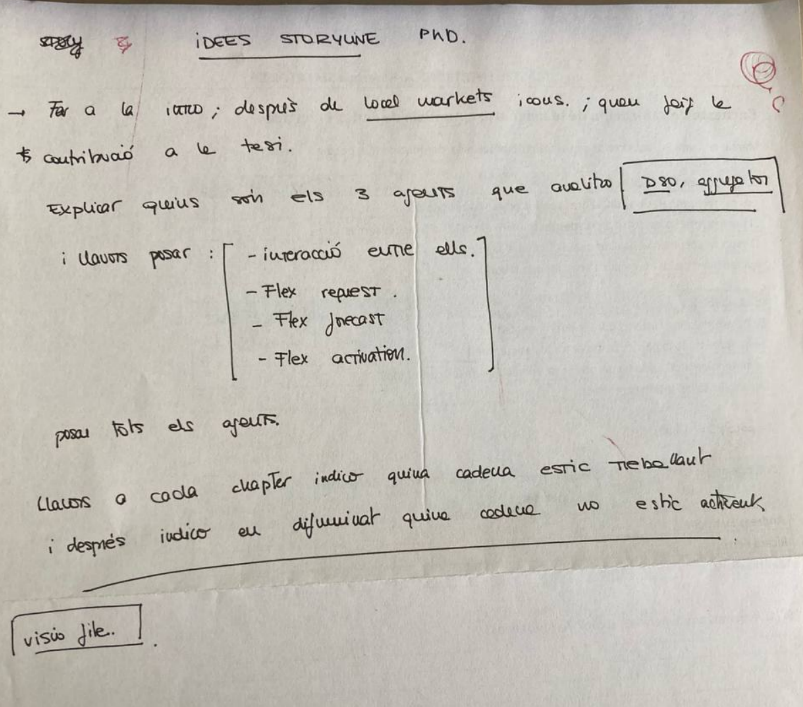 IDEES STORYLINE PhD.
→ Fer a la intro ; després de local markets icons. ; quan faig la
contribució a la tesi.
Explicar quins són els 3 agents que analitzo DSO, aggregator
i llavors posar : - interacció entre ells.
- Flex request.
- Flex forecast
- Flex activation.
posar tots els agents.
Llavors a cada chapter indico quina cadena estic treballant
i després indico en difuminat quina cadena no estic
visio file.